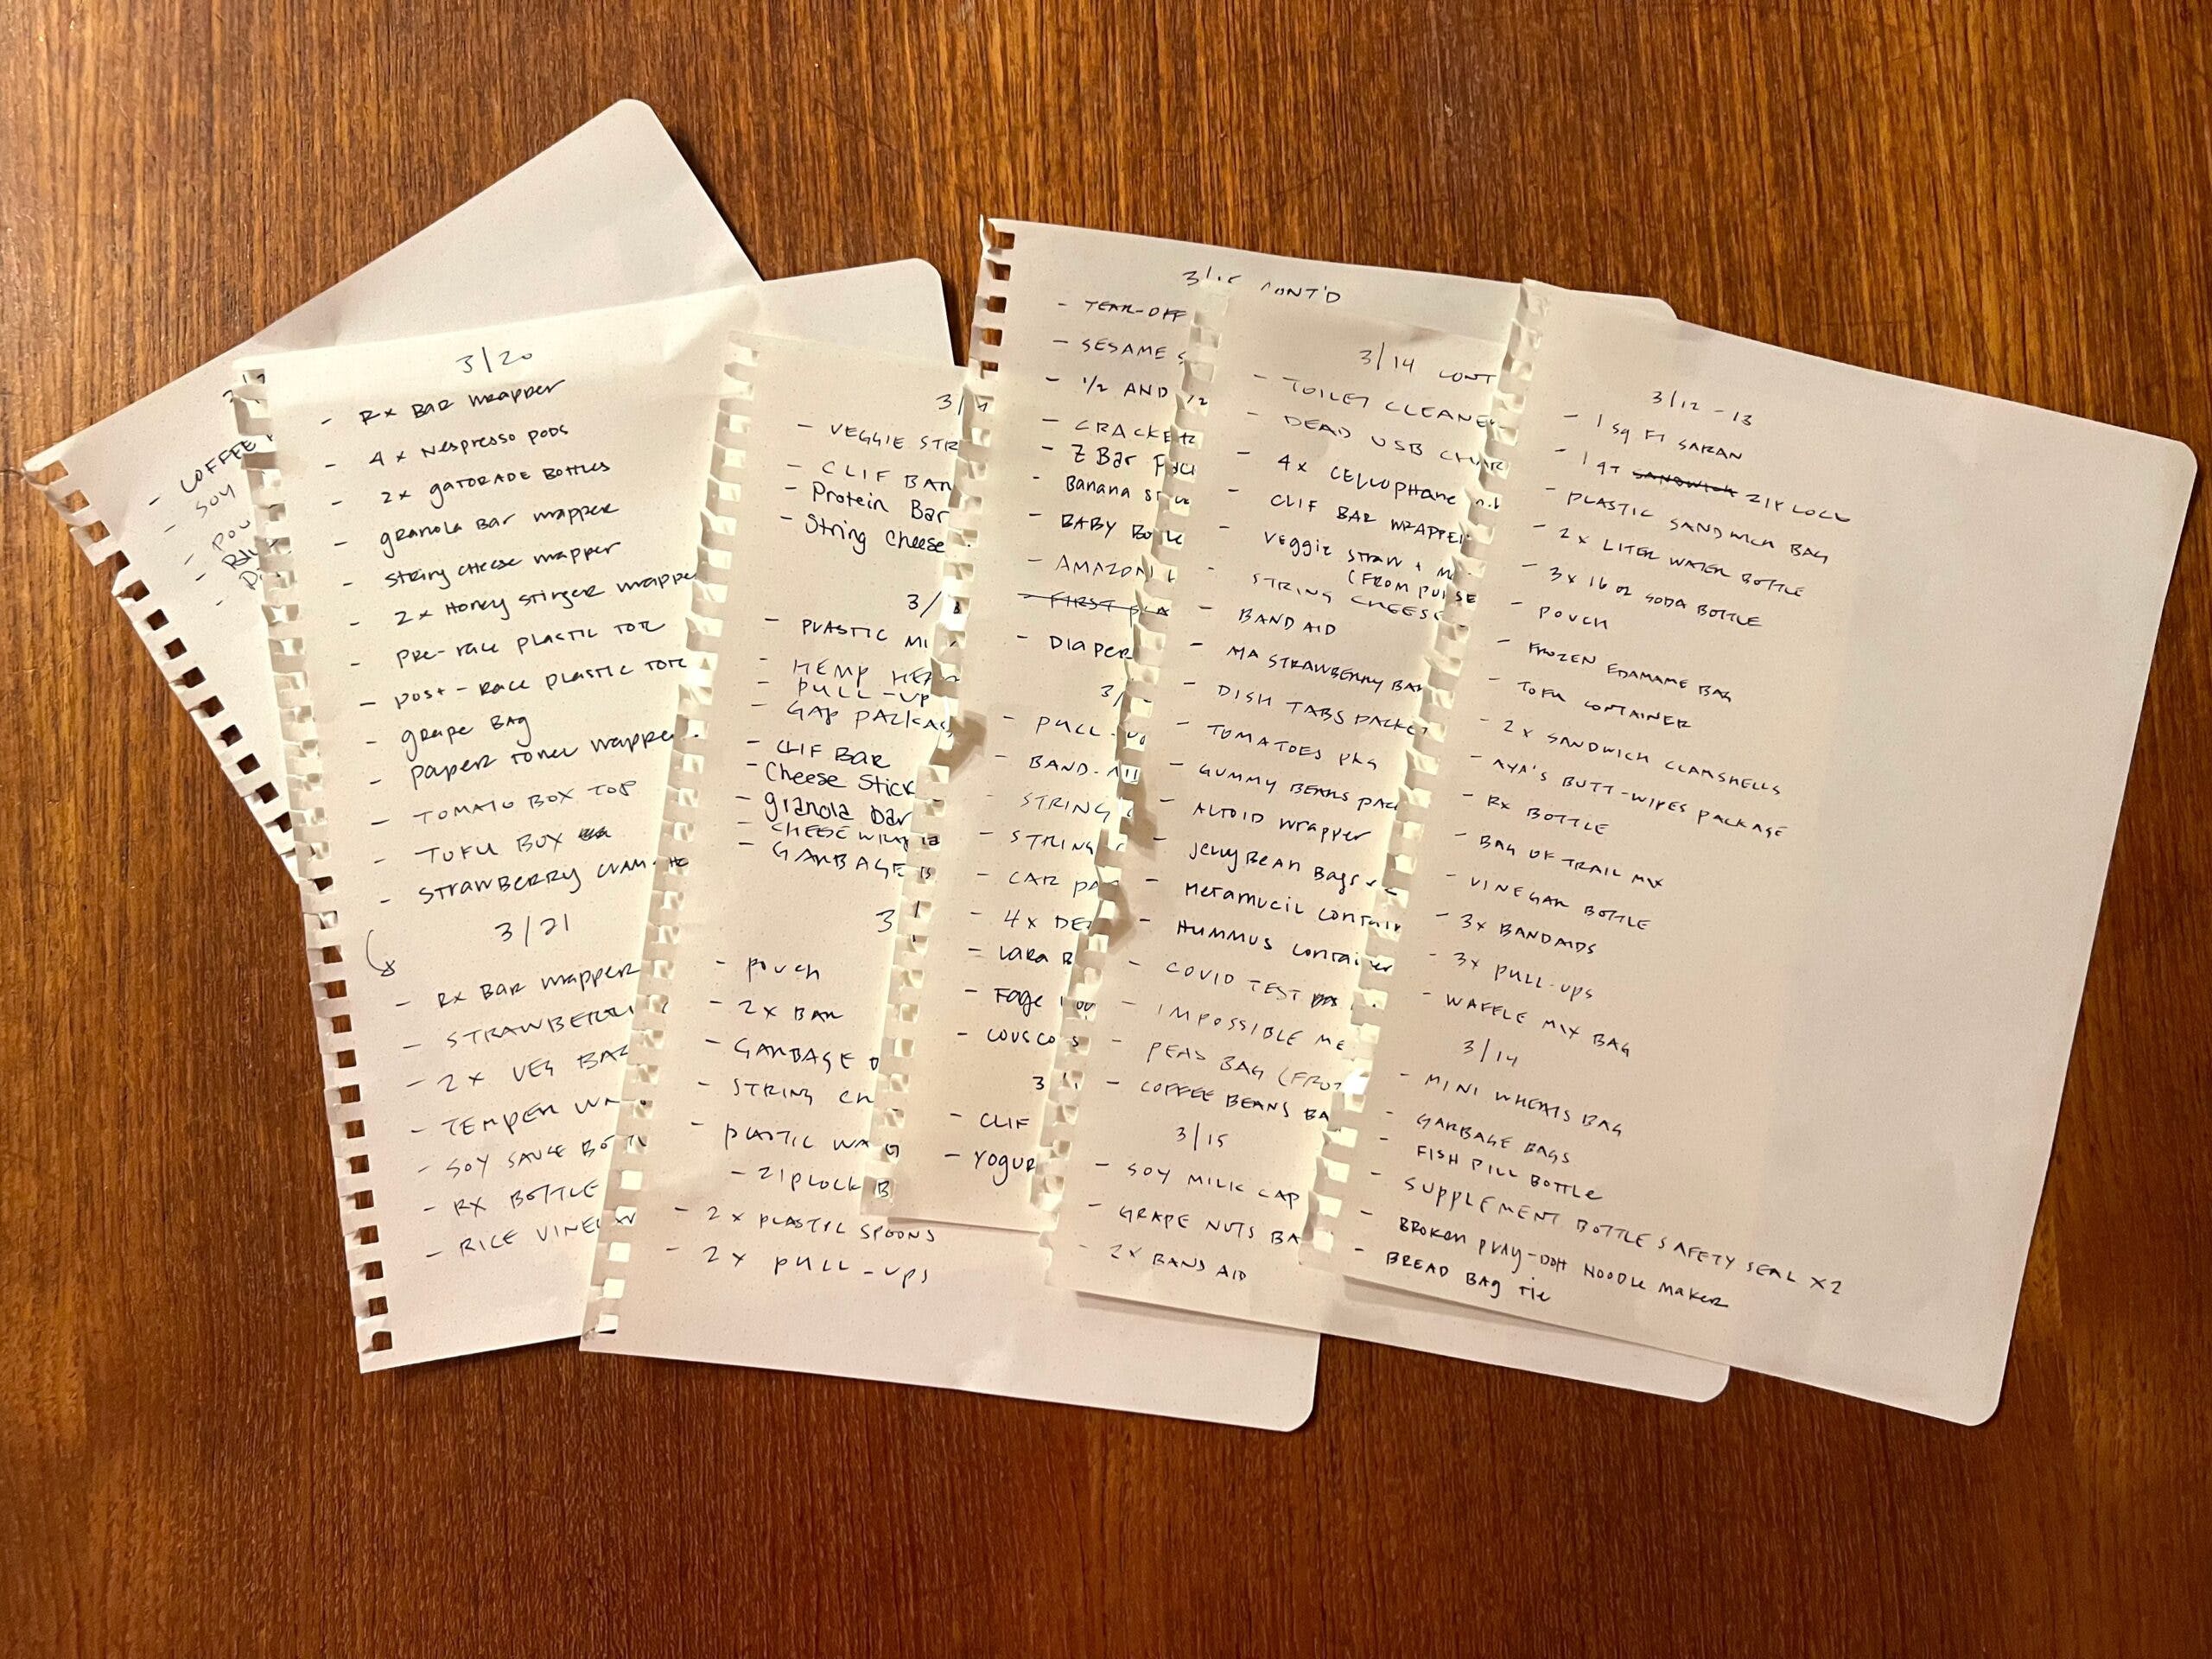 COFFEE
- SOY
3/20
- Rx Bar wrapper
- 4 x Nespresso pods
- 2x gatorade Bottles
- granola Bar wrapper
- string cheese wrapper
- 2x Honey stinger wrappe
- pre-race plastic
- post-race plastic
- grape Bag
- paper towel wrappe
- TOMATO BOX TOP
- TOFU BOX
- STRAWBERRY
3/21
- Rx Bar wrapper
- STRAWBERRI
- 2 x VEG BAG
- TEMPEH
- SOY SAUCE BOT
- RX BOTTLE
- RICE VINEG
- VEGGIE STR
- CLIF BAR
- Protein Bar
- String Cheese
- PLASTIC
- HEMP HEA
- PULL-UP
- GAP PACKAG
- CLIF BAR
- Cheese Stick
- granola Bar
- CHEESE
- GARBAGE B
- pouch
- 2x BAR
- GARBAGE
- STRING CH
- PLASTIC
- ZIPLOCK B
- 2 x PLASTIC SPOONS
- 2 x PULL-UPS
CONT'D
- TEAR-OFF
- SESAME
- 1/2 AND 1/2
- CRACKER
- Z Bar
- Banana
- BABY
- AMAZON
- FIRST
- Diaper
- PULL-
- BAND-
- STRING
- STRING
- CAR
- 4x
- Lara B
- Fage
- COUSCO
- CLIF
- YOGUR
3/14 CONT
- TOILET CLEANE
- DEAD USB CHAR
- 4x CELLOPHANE
- CLIF BAR WRAPPE
- Veggie STRAW +
(FROM PURSE
- STRING CHEESE
- BAND AID
- STRAWBERRY BA
- DISH TABS PACKE
- TOMATOES PKG
- GUMMY BEARS PAC
- ALTOID wrapper
- Jelly Bean Bags
- Metamucil contain
- HUMMUS container
- COVID TEST
- IMPOSSIBLE ME
- PEAS BAG (FROZ
- COFFEE BEANS BA
3/15
- SOY MILK CAP
- GRAPE NUTS BA
- 2x BAND AID
3/12 - 13
- 1 SQ FT SARAN
- 1 QT SANDWICH ZIPLOCK
- PLASTIC SANDWICH BAG
- 2x LITER WATER BOTTLE
- 3x 16 oz SODA BOTTLE
- POUCH
- FROZEN EDAMAME BAG
- TOFU CONTAINER
- 2 x SANDWICH CLAMSHELLS
- AYA'S BUTT-WIPES PACKAGE
- Rx BOTTLE
- BAG OF TRAIL MIX
- VINEGAR BOTTLE
- 3x BANDAIDS
- 3x PULL-UPS
- WAFFLE MIX BAG
3/14
- MINI WHEATS BAG
- GARBAGE BAGS
- FISH PILL BOTTLE
- SUPPLEMENT BOTTLE SAFETY SEAL X2
- BROKEN PLAY-DOH NOODLE MAKER
- BREAD BAG TIE